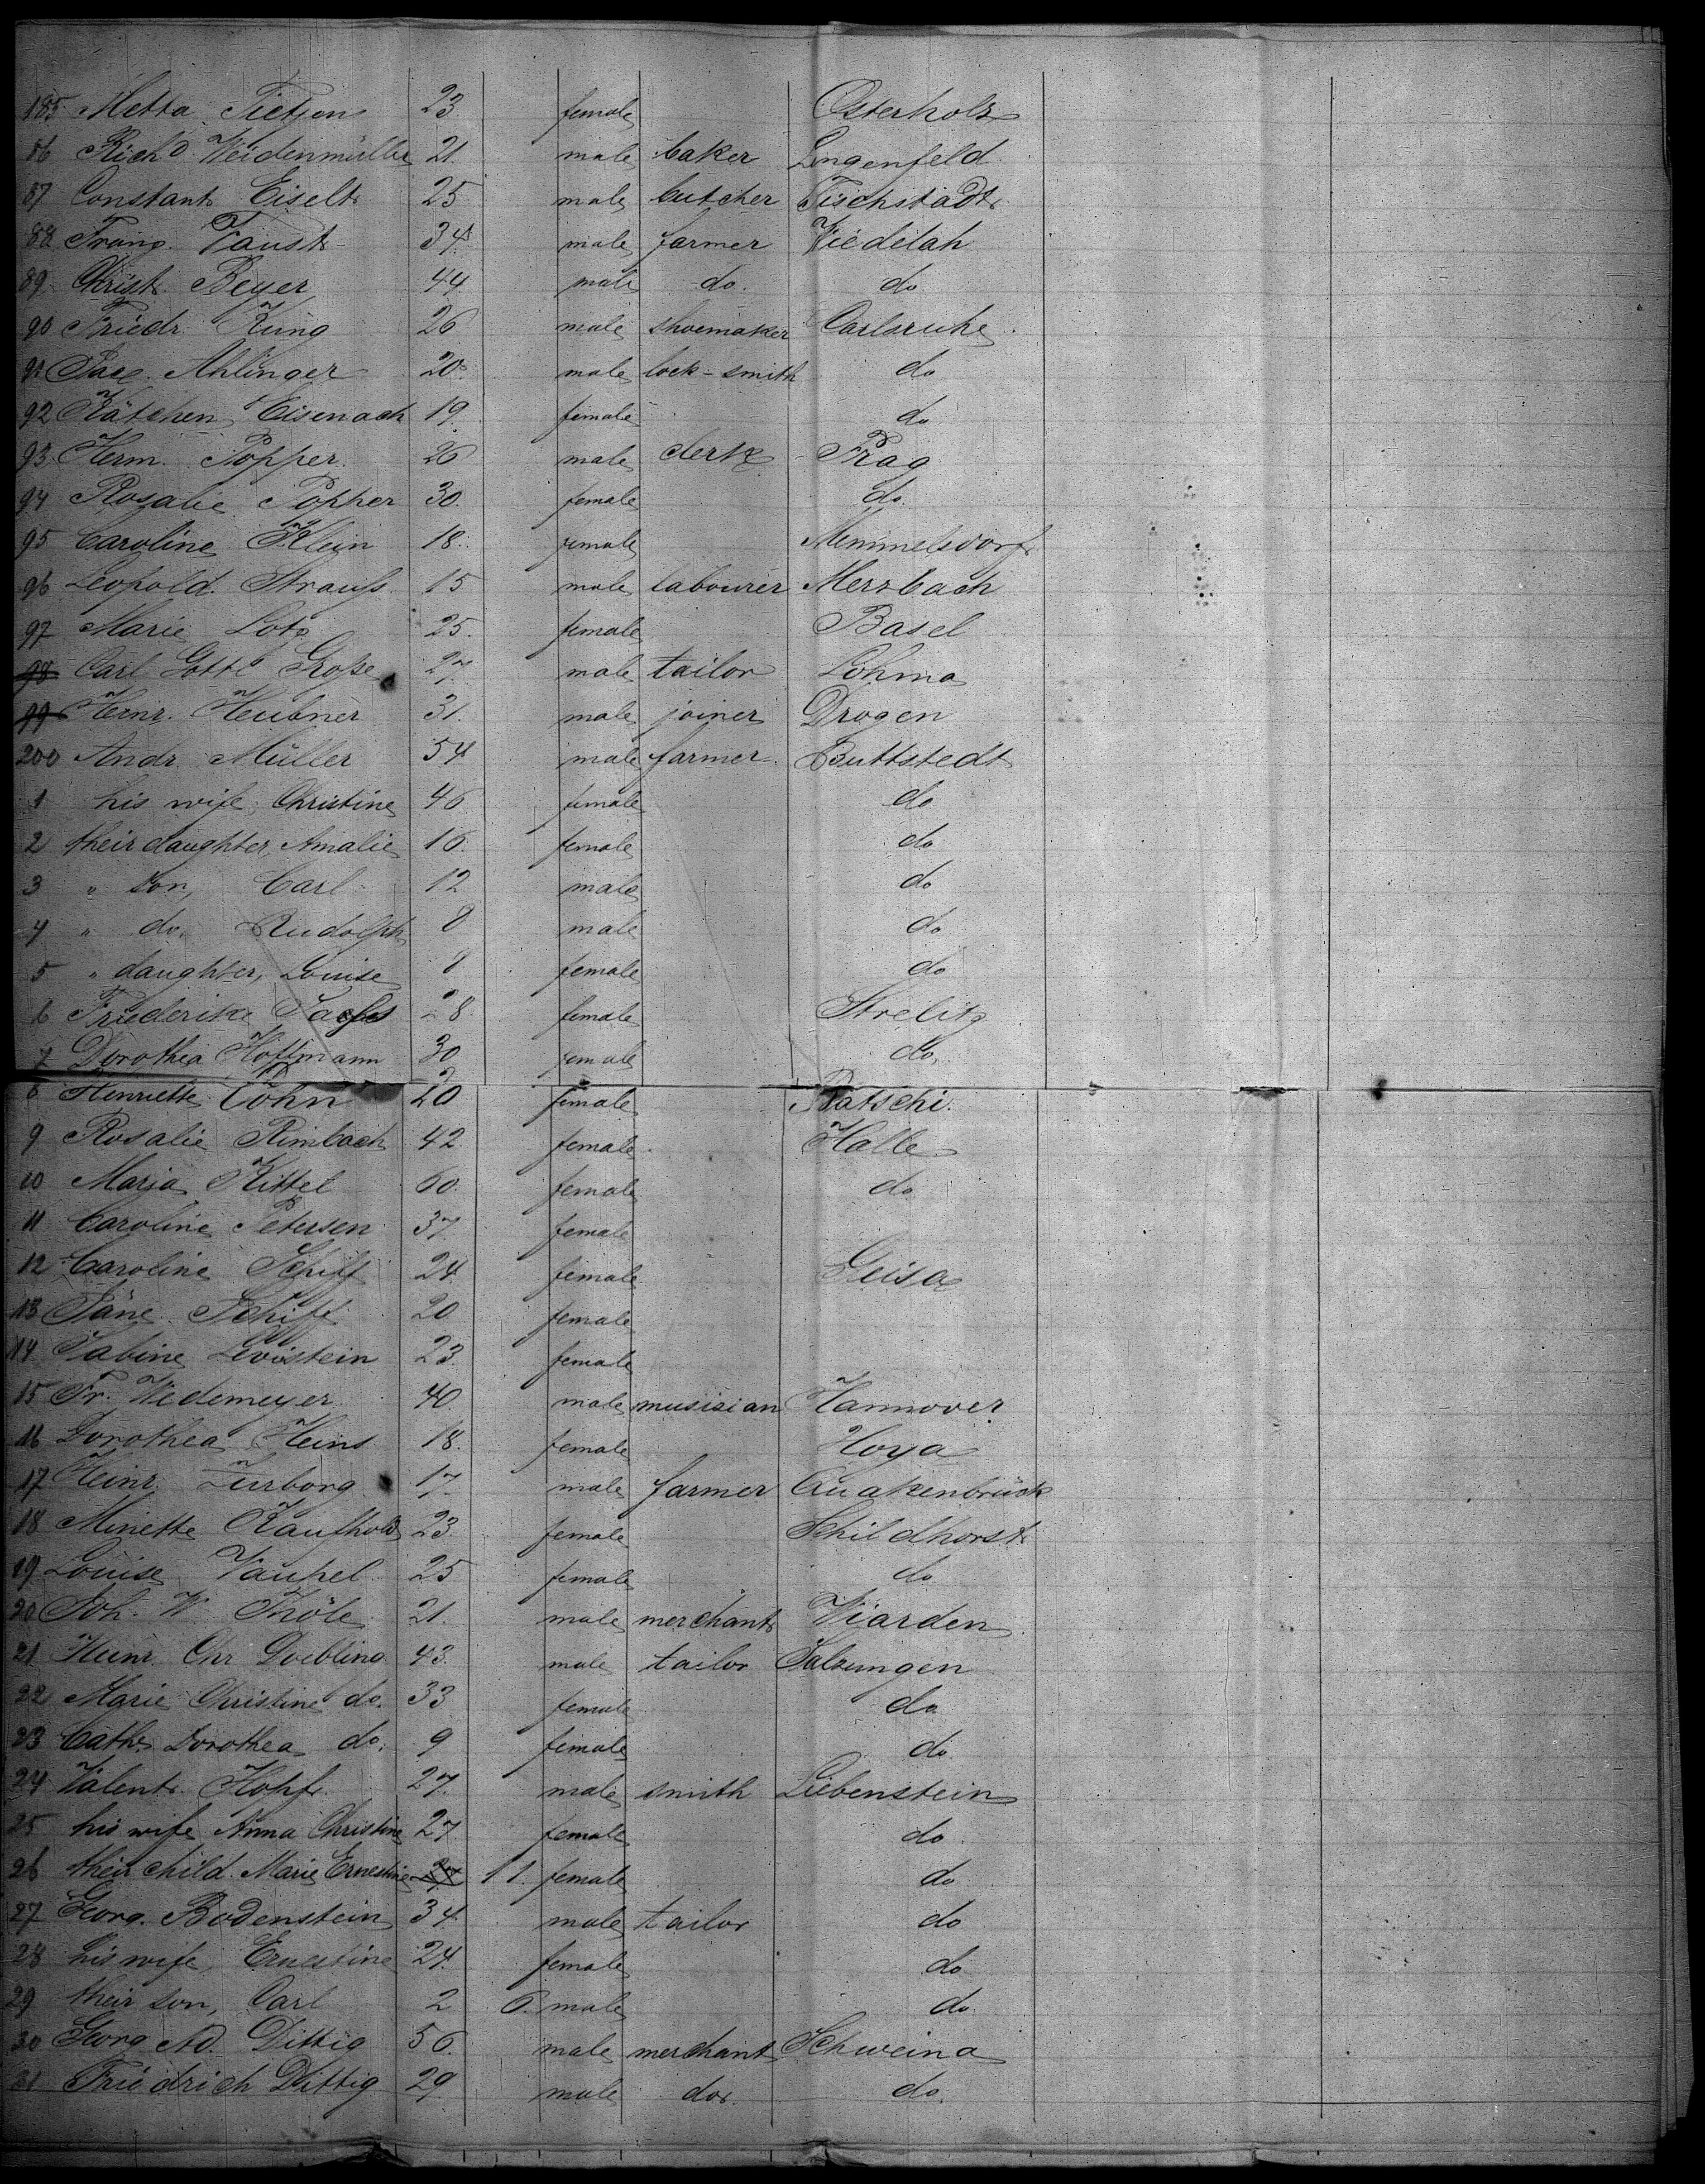 185 Metta Tietjen 23 female Osterholz
86 Richd Weidenmüller 21 male baker Lengenfeld
87 Constant Eiselt 25 male butcher Fischstädt
88 Franz. Faust 34 male farmer
89 Christ. Beyer 44 male do. do
90 Friedr. Küng 26 male shoemaker Carlsruhe
91 Ahlinger 20 male lock-smith do
92 Kätchen Eisenach 19 female do
93 Herm. Popper 26 male clerk Prag
94 Rosalie Popper 30 female do.
95 Caroline Klein 18 female Memmelsdorf
96 Leopold Strauß 15 male labourer Merzbach
97 Marie Lotz 25 female Basel
98 Carl Gottl Große 27 male tailor Lohma
99 Heinr. Heubner 31. male joiner Drogen
200 Andr. Müller 54 male farmer Buttstedt
1 his wife, Christine 46 female do
2 their daughter, Amalie 16 female do
3 " son, Carl 12 male do
4 " do. Rudolph 8 male do
5 " daughter, Louise 8 female do
6 Friederike 28 female Strelitz
7 Dorothea Hoffmann 30 female do.
8 Henriette Cohn 20 female Ratschi.
9 Rosalie Rimbach 42 female Halle
10 Maria Kittel 60 female do
11 Caroline Petersen 37 female
12 Caroline Schiff 24 female Geisa
13 Jäne Schiff 20 female
14 Sabine Levistein 23. female
15 Fr. Wedemeyer 40. male musisian Hannover
16 Dorothea Heins 18. female Hoya
17 Heinr. Zurborg 17 male farmer Quakenbrück
18 Minette Kaufhold 23 female Schildhorst
19 Louise Vaupel 25 female do
20 Joh. W. Thöle 21. male merchant Wiarden
21 Heinr. Chr Doebling 43. male tailor Salzungen
22 Marie Christine do. 33 female do
23 Cath. Dorothea do. 9 female do
24 Valent. Hopf 27 male smith Liebenstein
25 his wife Anna Christine 27 female do
26 their child Marie Ernestine 11. female do
27 Georg. Bodenstein 34 male tailor do
28 his wife, Ernestine 24. female do
29 their son, Carl 2 6. male do
30 Georg Ad. Dittig 56. male merchant Schweina
31 Friedrich Dittig 29 male do. do.